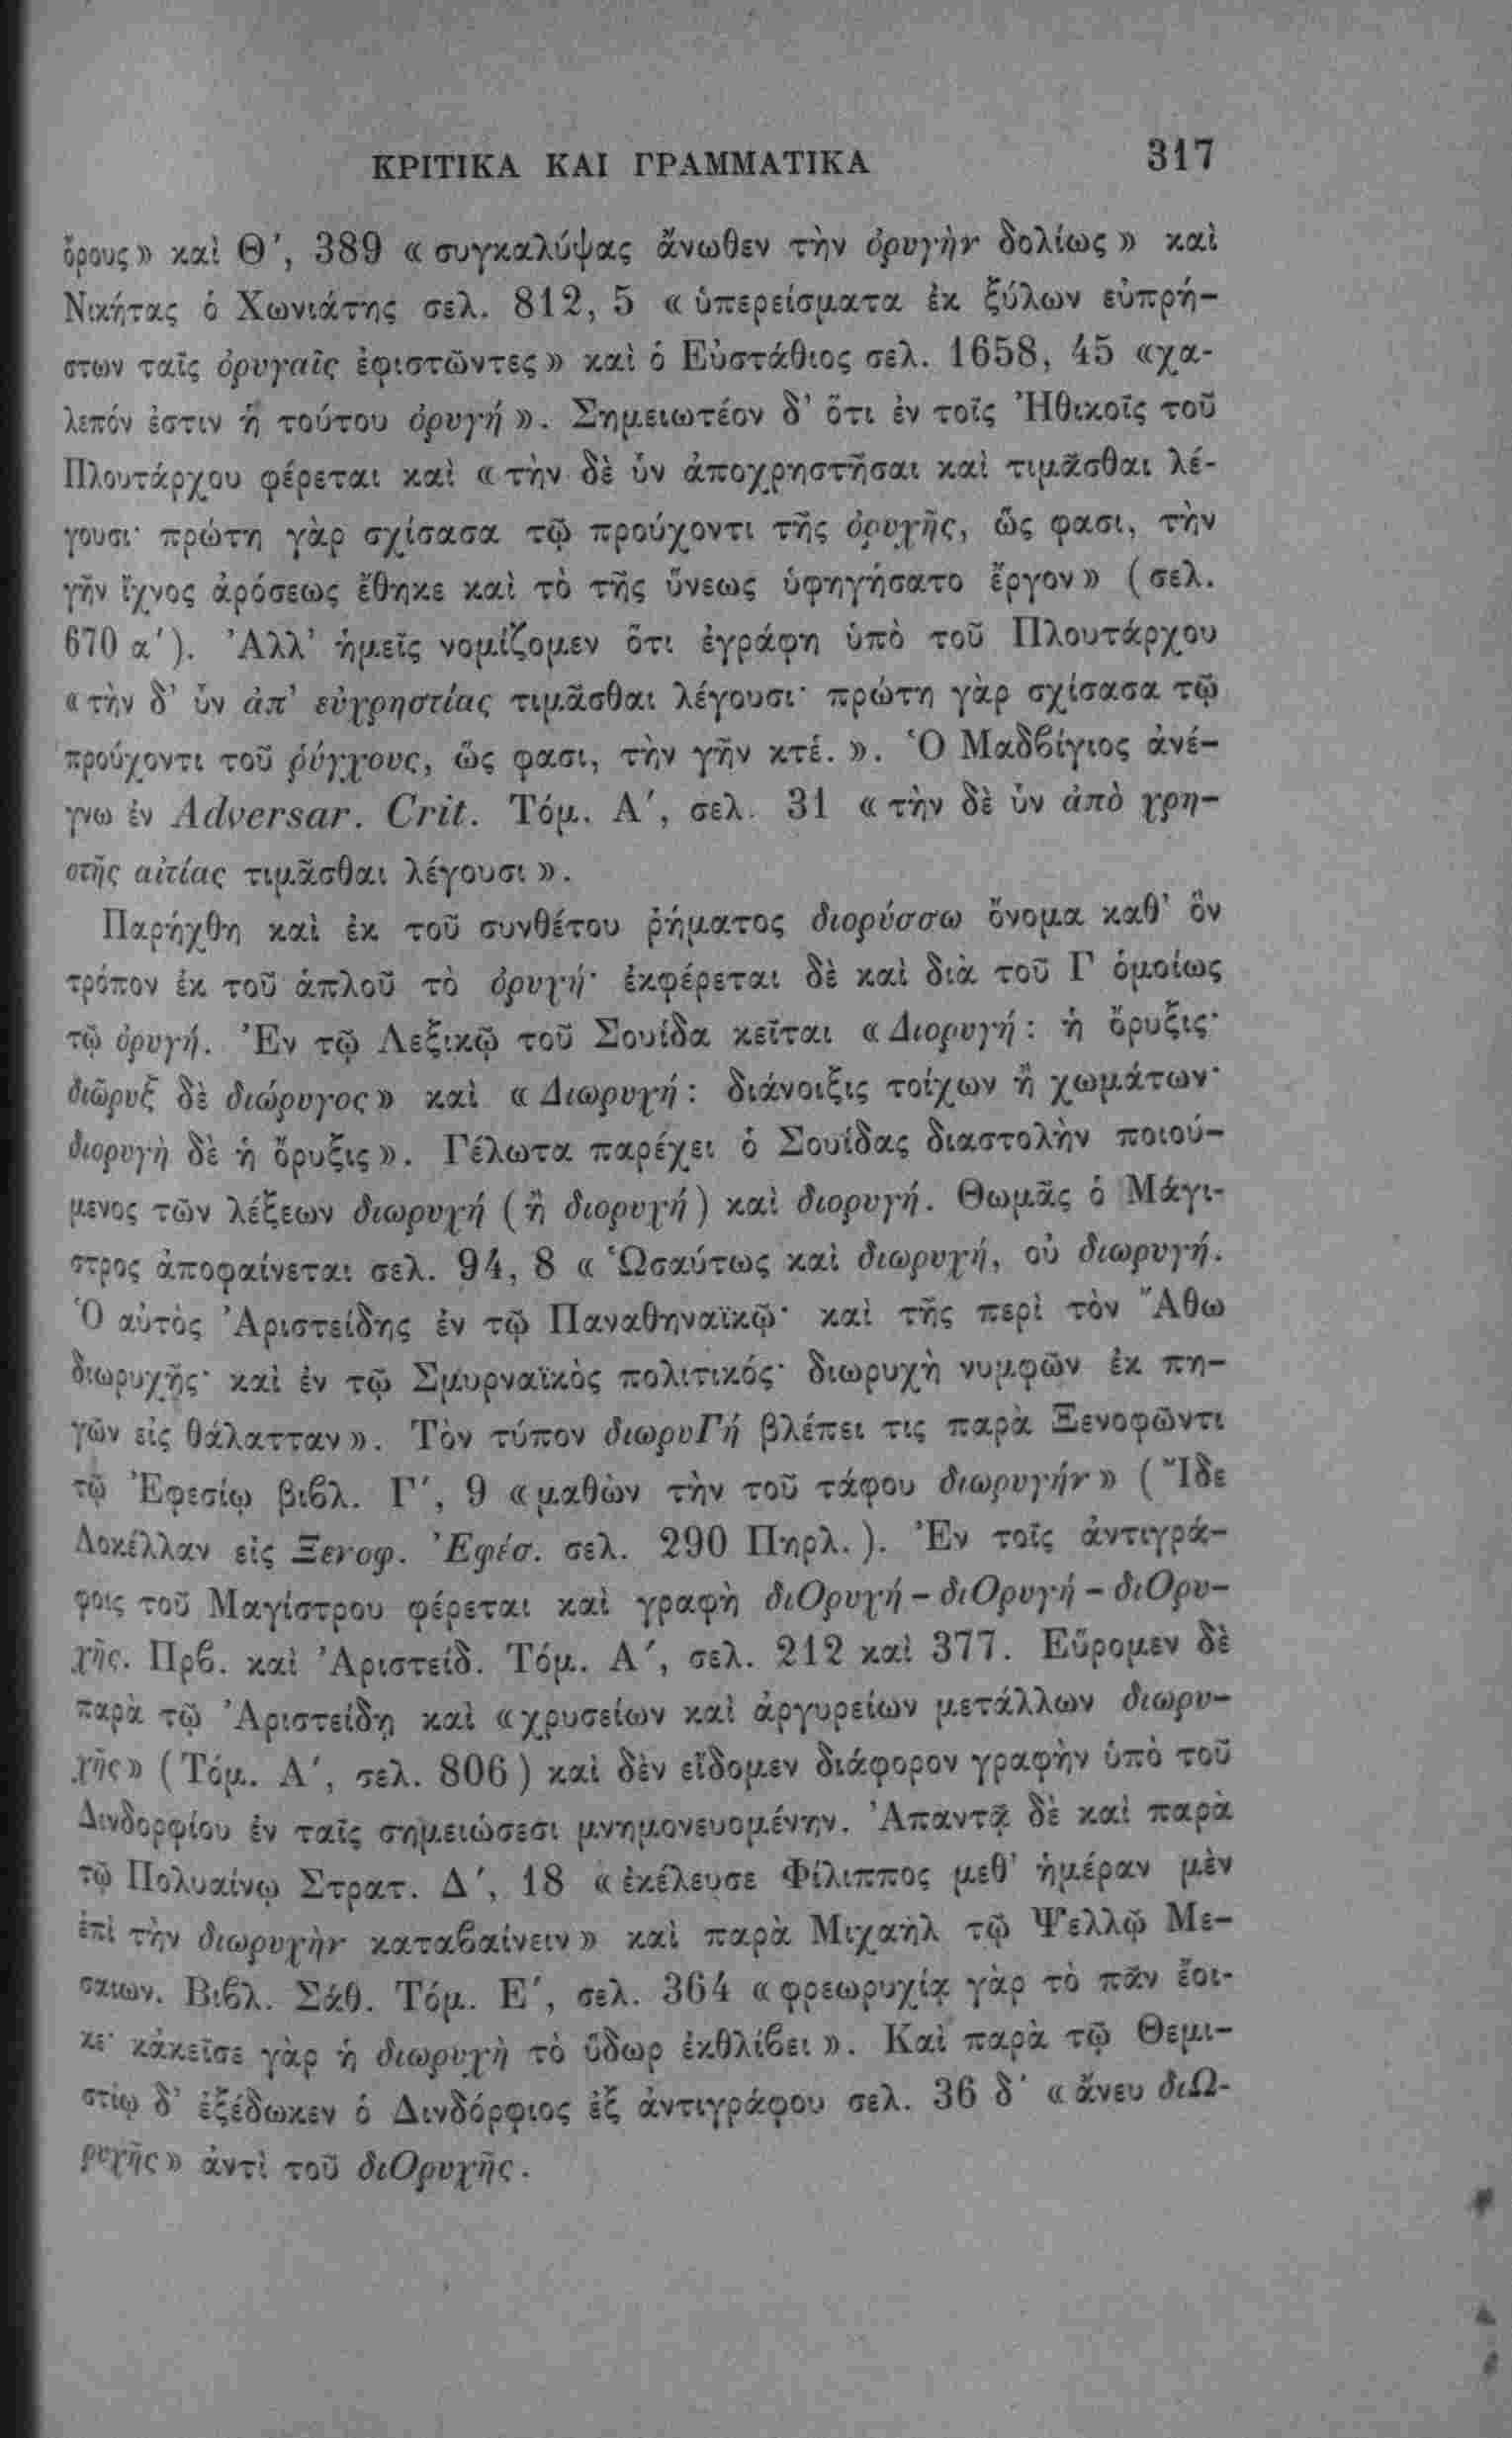 ΚΡΙΤΙΚΑ ΚΑΙ ΓΡΑΜΜΑΤΙΚΑ 317
ὄρους» καὶ Θ΄, 389 «συγκαλύψας ἄνωθεν τὴν ὀρυγὴν δολίως» καὶ
Νικήτας ὁ Χωνιάτης σελ. 812, 5 «ὑπερείσματα ἐκ ξύλων εὐπρή-
στων ταῖς ὀρυγαῖς ἐφιστῶντες» καὶ ὁ Εὐστάθιος σελ. 1658, 45 «χα-
λεπόν ἐστιν ἡ τούτου ὀρυγή». Σημειωτέον δ' ὅτι ἐν τοῖς Ἠθικοῖς τοῦ
Πλουτάρχου φέρεται καὶ «τὴν δὲ ὗν ἀποχρηστῆσαι καὶ τιμᾶσθαι λέ-
γουσι· πρώτη γὰρ σχίσασα τῷ προύχοντι τῆς ὀρυχῆς, ὥς φασι, τὴν
γῆν ἴχνος ἀρόσεως ἔθηκε καὶ τὸ τῆς ὕνεως ὑφηγήσατο ἔργον» (σελ.
670 α΄). Ἀλλ' ἡμεῖς νομίζομεν ὅτι ἐγράφη ὑπὸ τοῦ Πλουτάρχου
«τὴν δ' ὗν ἀπ' εὐχρηστίας τιμᾶσθαι λέγουσι· πρώτη γὰρ σχίσασα τῷ
προύχοντι τοῦ ῥύγχους, ὥς φασι, τὴν γῆν κτέ.». Ὁ Μαδβίγιος ἀνέ-
γνω ἐν Adversar. Crit. Τόμ. Α΄, σελ. 31 «τὴν δὲ ὗν ἀπὸ χρη-
στῆς αἰτίας τιμᾶσθαι λέγουσι».
Παρήχθη καὶ ἐκ τοῦ συνθέτου ῥήματος διορύσσω ὄνομα καθ' ὃν
τρόπον ἐκ τοῦ ἁπλοῦ τὸ ὀρυχή· ἐκφέρεται δὲ καὶ διὰ τοῦ Γ ὁμοίως
τῷ ὀρυγή. Ἐν τῷ Λεξικῷ τοῦ Σουίδα κεῖται «Διορυγή: ἡ ὄρυξις·
διῶρυξ δὲ διώρυγος» καὶ «Διωρυχή: διάνοιξις τοίχων ἢ χωμάτων·
διορυγὴ δὲ ἡ ὄρυξις». Γέλωτα παρέχει ὁ Σουίδας διαστολὴν ποιού-
μενος τῶν λέξεων διωρυχή (ἢ διορυχή) καὶ διορυγή. Θωμᾶς ὁ Μάγι-
στρος ἀποφαίνεται σελ. 94, 8 «Ὡσαύτως καὶ διωρυχή, οὐ διωρυγή.
Ὁ αὐτὸς Ἀριστείδης ἐν τῷ Παναθηναϊκῷ· καὶ τῆς περὶ τὸν Ἄθω
διωρυχῆς· καὶ ἐν τῷ Σμυρναϊκὸς πολιτικός· διωρυχὴ νυμφῶν ἐκ πη-
γῶν εἰς θάλατταν». Τὸν τύπον διωρυΓή βλέπει τις παρὰ Ξενοφῶντι
τῷ Ἐφεσίῳ βιβλ. Γ΄, 9 «μαθὼν τὴν τοῦ τάφου διωρυγήν» (Ἴδε
Λοκέλλαν εἰς Ξενοφ. Ἐφέσ. σελ. 290 Πηρλ.). Ἐν τοῖς ἀντιγρά-
φοις τοῦ Μαγίστρου φέρεται καὶ γραφὴ διΟρυχή – διΟρυγή – διΟρυ-
χῆς. Πρβ. καὶ Ἀριστείδ. Τόμ. Α΄, σελ. 212 καὶ 377. Εὕρομεν δὲ
παρὰ τῷ Ἀριστείδῃ καὶ «χρυσείων καὶ ἀργυρείων μετάλλων διωρυ-
χῆς» (Τόμ. Α΄, σελ. 806) καὶ δὲν εἴδομεν διάφορον γραφὴν ὑπὸ τοῦ
Δινδορφίου ἐν ταῖς σημειώσεσι μνημονευομένην. Ἀπαντᾷ δὲ καὶ παρὰ
τῷ Πολυαίνῳ Στρατ. Δ΄, 18 «ἐκέλευσε Φίλιππος μεθ' ἡμέραν μὲν
ἐπὶ τὴν διωρυχὴν καταβαίνειν» καὶ παρὰ Μιχαὴλ τῷ Ψελλῷ Με-
σαιων. Βιβλ. Σάθ. Τόμ. Ε΄, σελ. 364 «φρεωρυχίᾳ γὰρ τὸ πᾶν ἔοι-
κε· κἀκεῖσε γὰρ ἡ διωρυχὴ τὸ ὕδωρ ἐκθλίβει». Καὶ παρὰ τῷ Θεμι-
στίῳ δ' ἐξέδωκεν ὁ Δινδόρφιος ἐξ ἀντιγράφου σελ. 36 δ΄ «ἄνευ διΩ-
ρυχῆς» ἀντὶ τοῦ διΟρυχῆς.